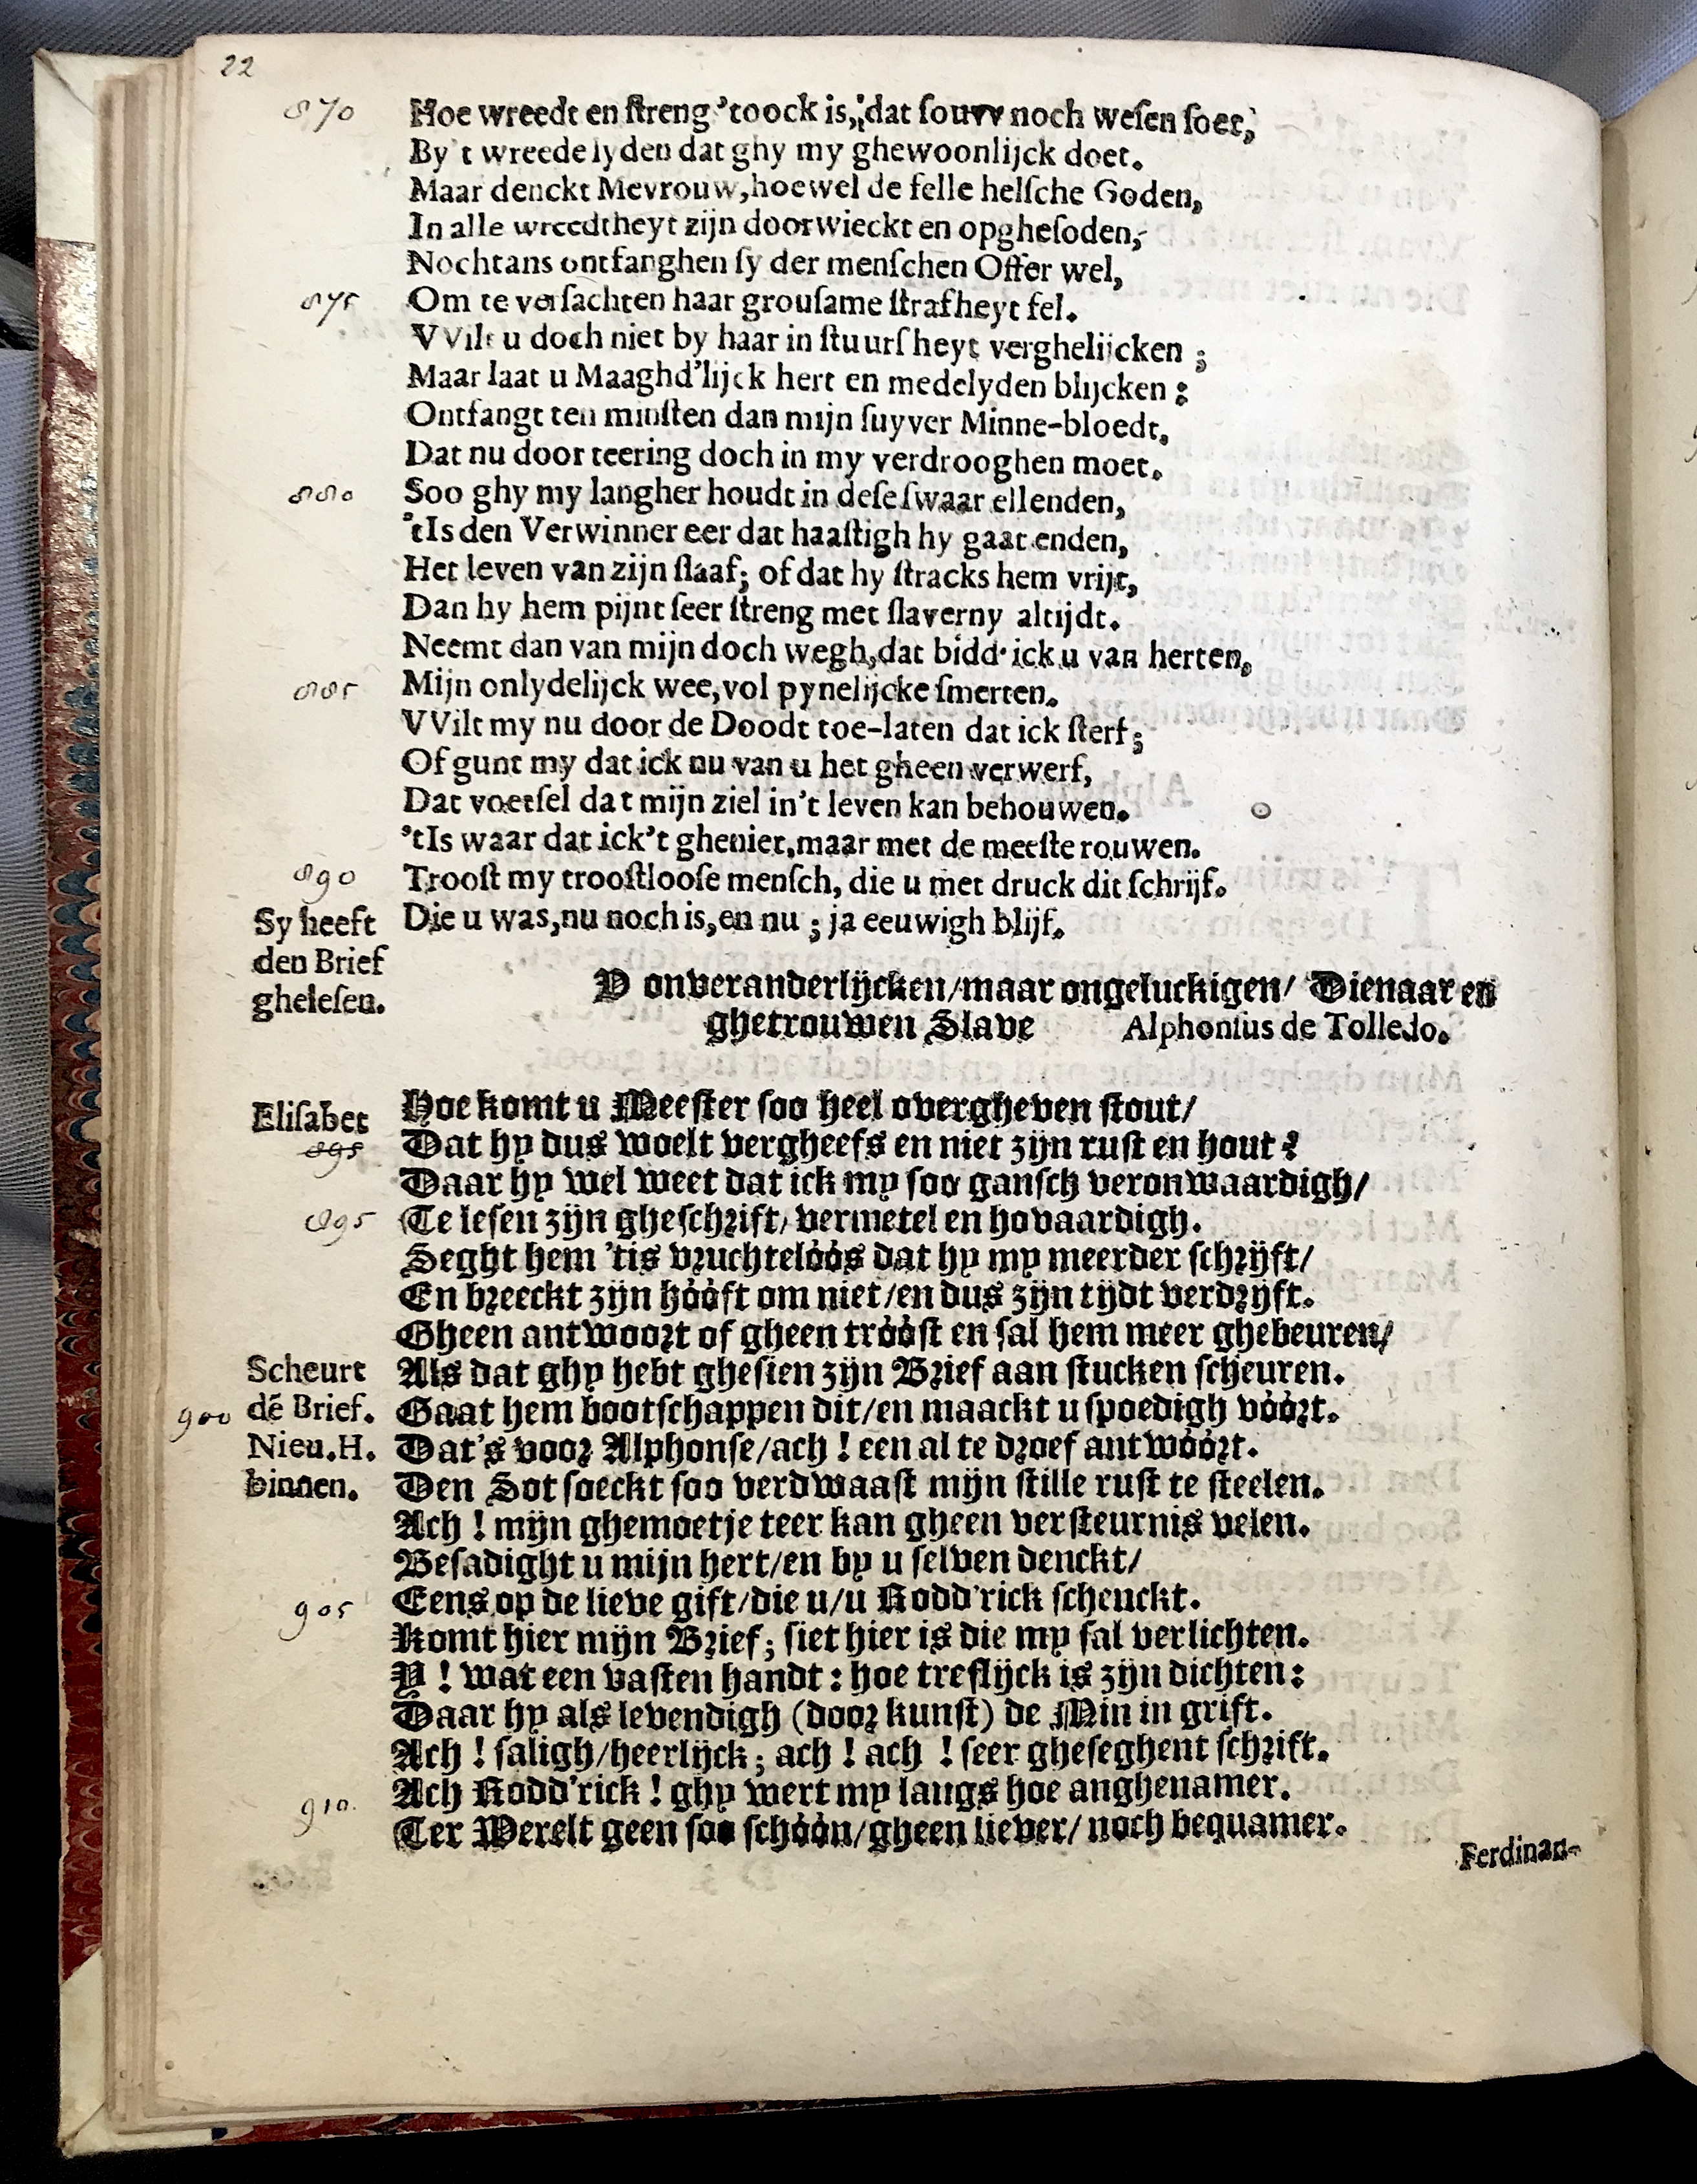 22
870 Hoe wreedt en ſtreng 'toock is, dat ſouvv noch weſen ſoet,
By 't wreede lyden dat ghy my ghewoonlijck doet.
Maar denckt Mevrouw, hoewel de felle helſche Goden,
In alle wreedtheyt zijn doorwieckt en opgheſoden,
Nochtans ontfanghen ſy der menſchen Offer wel,
875 Om te verſachten haar grouſame ſtrafheyt fel.
VVilt u doch niet by haar in ſtuurſheyt verghelijcken ;
Maar laat u Maaghd'lijck hert en medelyden blijcken :
Ontfangt ten minſten dan mijn ſuyver Minne-bloedt,
Dat nu door teering doch in my verdrooghen moet.
880 Soo ghy my langher houdt in deſe ſwaar ellenden,
'tIs den Verwinner eer dat haaſtigh hy gaat enden,
Het leven van zijn ſlaaf; of dat hy ſtracks hem vrijt,
Dan hy hem pijnt ſeer ſtreng met ſlaverny altijdt.
Neemt dan van mijn doch wegh, dat bidd' ick u van herten,
885 Mijn onlydelijck wee, vol pynelijcke ſmerten.
VVilt my nu door de Doodt toe-laten dat ick ſterf;
Of gunt my dat ick nu van u het gheen verwerf,
Dat voetſel dat mijn ziel in't leven kan behouwen.
'tIs waar dat ick't gheniet, maar met de meeſte rouwen.
890 Trooſt my trooſtlooſe menſch, die u met druck dit ſchrijf.
Die u was, nu noch is, en nu ; ja eeuwigh blijf.
Sy heeft
den Brief
gheleſen.
V onveranderlijcken/maar ongeluckigen/ Dienaar en
ghetrouwen Slave Alphonſus de Tolledo.
Eliſabet Hoe komt u Meeſter ſoo heel overgheven ſtout/
895 Dat hy dus woelt vergheefs en niet zijn ruſt en hout?
Daar hy wel weet dat ick my ſoo ganſch veronwaardigh/
895 Te leſen zijn gheſchrift/ vermetel en hovaardigh.
Seght hem 'tis vruchtelóós dat hy my meerder ſchrijft/
En breeckt zijn hóóft om niet/en dus zijn tijdt verdrijft.
Gheen antwoort of gheen tróóſt en ſal hem meer ghebeuren/
Scheurt Als dat ghy hebt gheſien zijn Brief aan ſtucken ſcheuren.
900 dē Brief. Gaat hem bootſchappen dit/en maackt u ſpoedigh vóórt.
Nieu.H. Dat's voor Alphonſe/ach ! een al te droef antwóórt.
binnen. Den Sot ſoeckt ſoo verdwaaſt mijn ſtille ruſt te ſteelen.
Ach ! mijn ghemoetje teer kan gheen verſteurnis velen.
Beſadight u mijn hert/en by u ſelven denckt/
905 Eens op de lieve gift/die u/u Rodd'rick ſchenckt.
Komt hier mijn Brief; ſiet hier is die my ſal verlichten.
Y ! wat een vaſten handt : hoe treflijck is zijn dichten:
Daar hy als levendigh (door kunſt) de Min in grift.
Ach ! ſaligh/heerlijck; ach ! ach ! ſeer gheſeghent ſchrift.
910 Ach Rodd'rick ! ghy wert my langs hoe anghenamer.
Ter Werelt geen ſoo ſchóón/gheen liever/ noch bequamer.
Ferdinan-